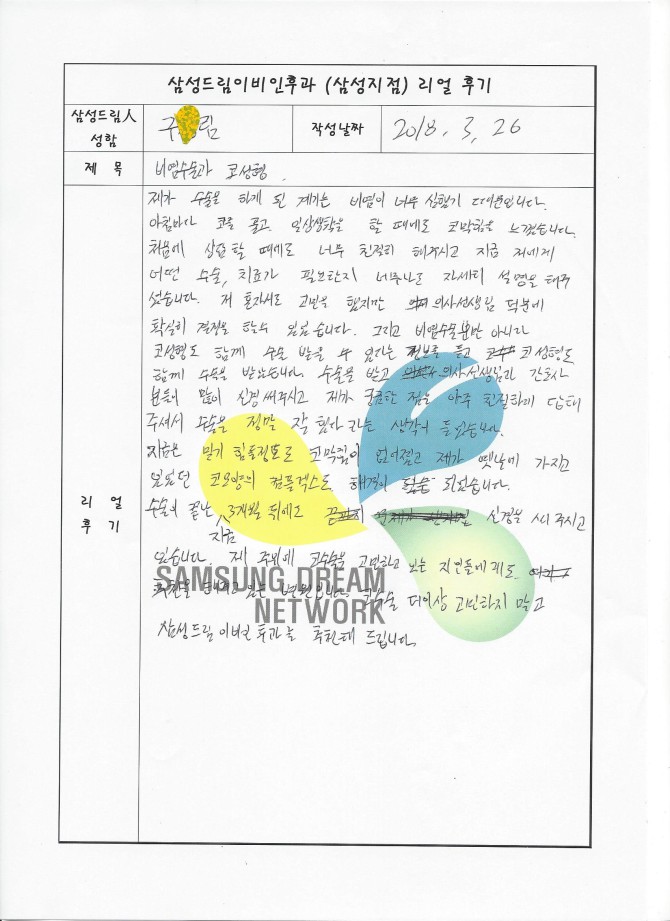 삼성드림이비인후과 (삼성지점) 리얼 후기
삼성드림人
성함
구 림
작성날짜
2018. 3. 26
제 목
비염수술과 코성형.
제가 수술을 하게 된 계기는 비염이 너무 심했기 때문입니다.
아침마다 코를 풀고 일상생활을 할 때에도 코막힘을 느꼈습니다.
처음에 상담할 때에도 너무 친절히 해주시고 지금 저에게
어떤 수술, 치료가 필요한지 너무나도 자세히 설명을 해주
셨습니다. 저 혼자서도 고민을 했지만 의사선생님 덕분에
확실히 결정을 할 수 있었습니다. 그리고 비염수술뿐만 아니라
코성형도 함께 수술 받을 수 있다는 정보를 듣고 코성형도
함께 수술을 받았습니다. 수술을 받고 의사선생님과 간호사
분들이 많이 신경써주시고 제가 궁금한 점을 아주 친절하게 답해
주셔서 수술을 정말 잘 했다 라는 생각이 들었습니다.
지금은 믿기 힘들정도로 코막힘이 없어졌고 제가 옛날에 가지고
있었던 코모양의 컴플렉스도 해결이 되었습니다.
수술이 끝난 지금 3개월 뒤에도 신경을 써 주시고
있습니다. 제 주위에 코수술을 고민하고 있는 지인들에게도
병원입니다. 코수술 더이상 고민하지 말고
삼성드림이비인후과를 추천해 드립니다.
리 얼
후 기
SAMSUNG DREAM
NETWORK